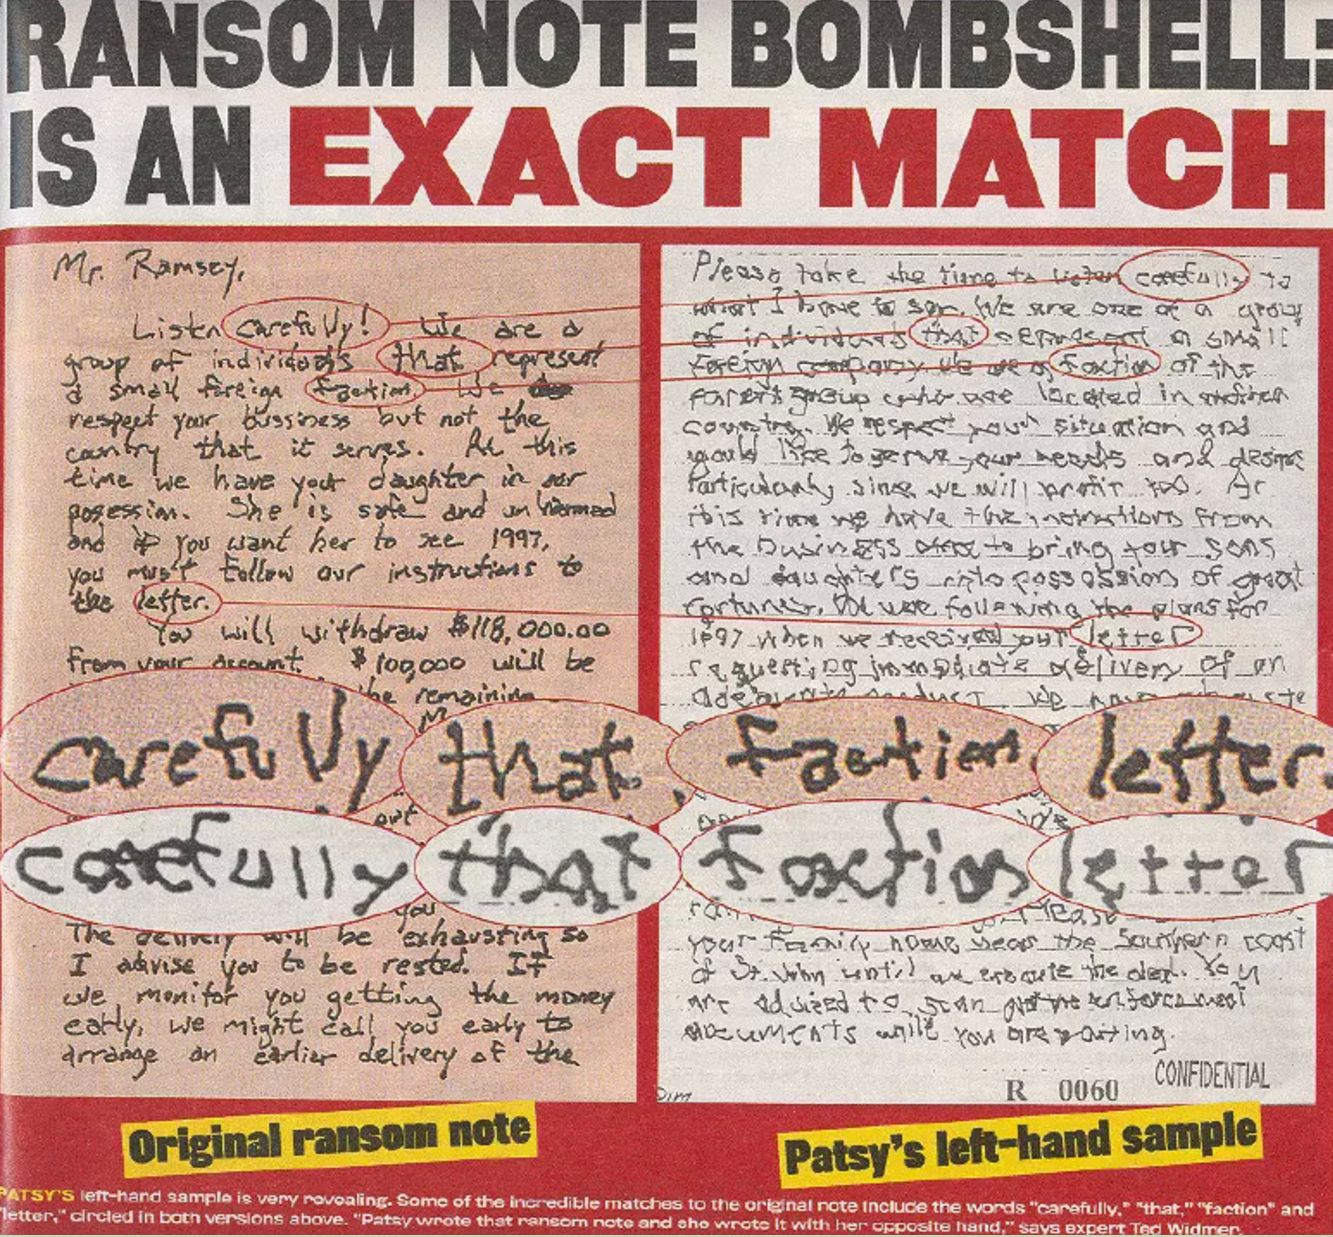 RANSOM NOTE BOMBSHELL:
IS AN EXACT MATCH
Mr. Ramsey,
Listen carefully! We are a
group of individuals that represent
a small foreign faction. We
respect your bussiness but not the
country that it serves. At this
time we have your daughter in our
posession. She is safe and unharmed
and if you want her to see 1997,
you must follow our instructions to
the letter.
You will withdraw $118,000.00
from your account. $100,000 will be
the remaining
out
you
The delivery will be exhausting so
I advise you to be rested. If
we monitor you getting the money
early, we might call you early to
arrange an earlier delivery of the
Please take the time to listen carefully to
what I have to say. We are one of a group
of individuals that represent a small
foreign company. We are a faction of the
parent group who are located in another
country. We respect your situation and
would like to serve your needs and desires
particularly since we will profit too. At
this time we have the instructions from
the business to bring your sons
and daughters into possession of great
fortunes. We were following the plans for
1997 when we received your letter
requesting immediate delivery of an
adequate product. We have
carefully that faction letter.
carefully that faction letter
Please
your family home near the Southern coast
of St. John until we execute the deal. You
are advised to scan the enforcement
documents while you are waiting.
CONFIDENTIAL
R 0060
Original ransom note
Patsy's left-hand sample
PATSY'S left-hand sample is very revealing. Some of the incredible matches to the original note include the words "carefully," "that," "faction" and
"letter," circled in both versions above. "Patsy wrote that ransom note and she wrote it with her opposite hand," says expert Ted Widmer.